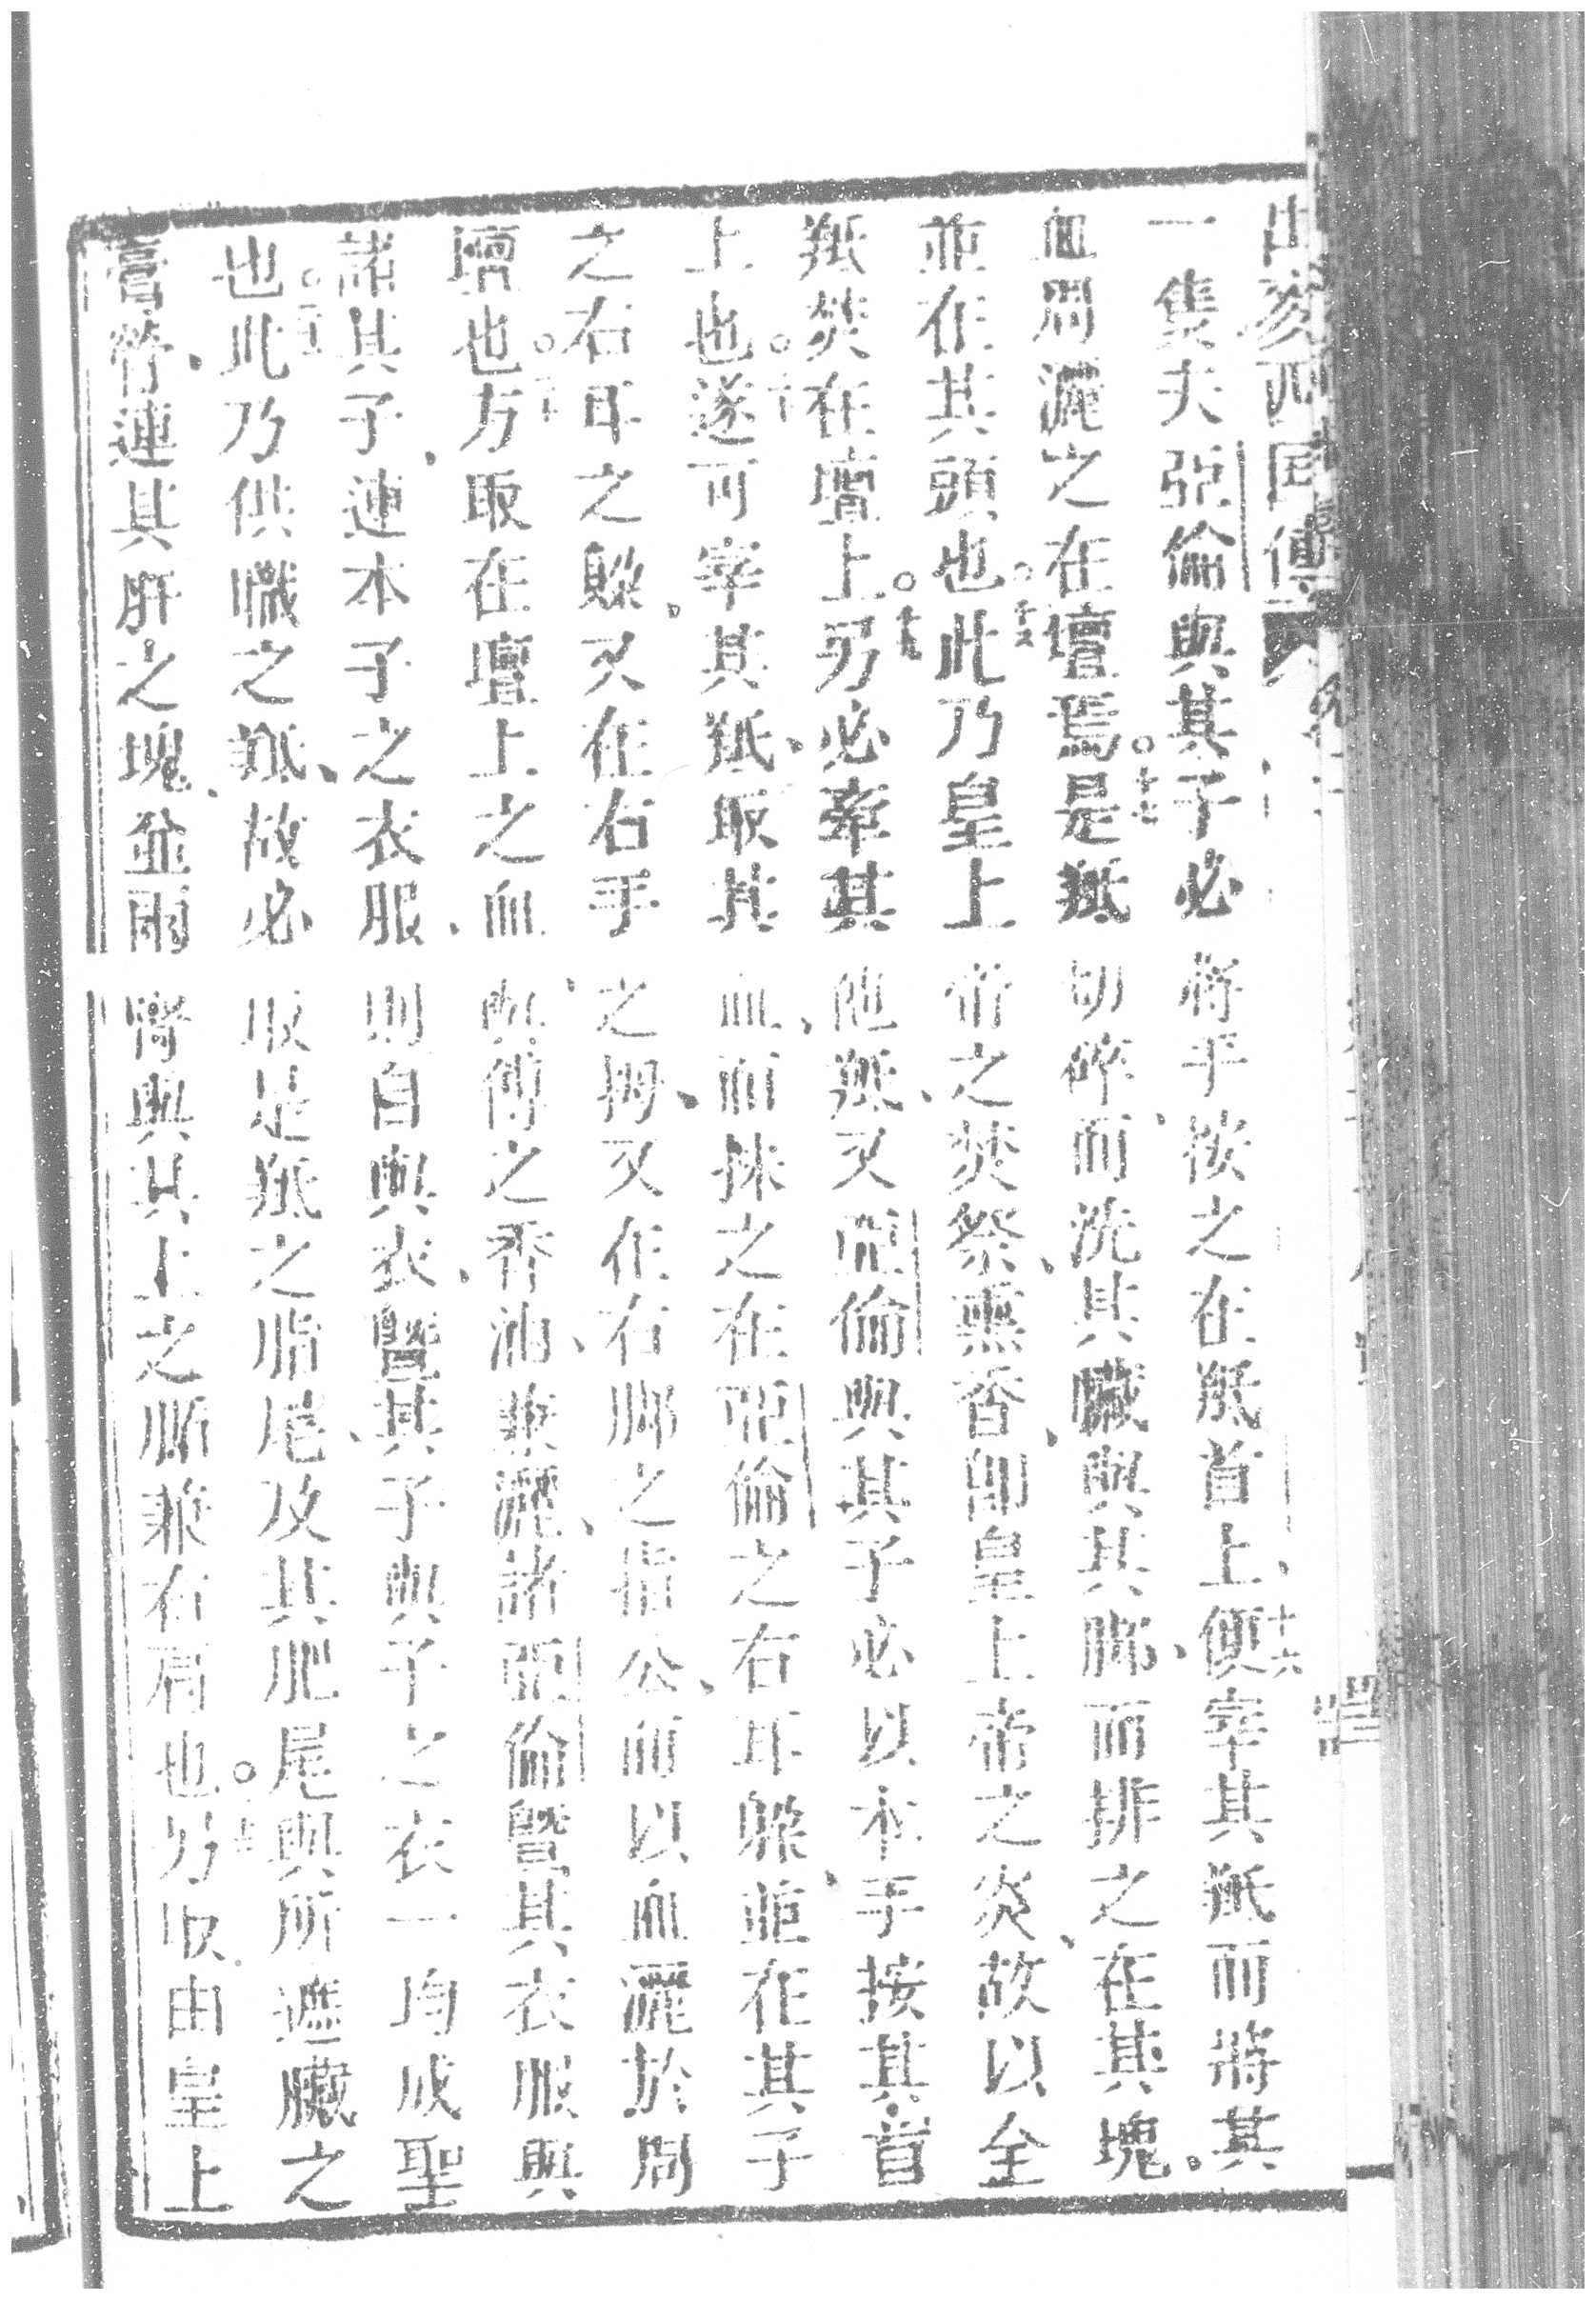 出麥西國傳
一隻夫亞倫與其子必將手按之在羝首上。十六便宰其羝而將其
血周灑之在壇焉。十七是羝切碎、而洗其臟與其脚、而排之在其塊、
並在其頭也。十八此乃皇上帝之焚祭、熏香、卽皇上帝之炎、故以全
羝焚在壇上。十九另必牽其他羝、又亞倫與其子必以本手按其首
上也。二十遂可宰其羝、取其血、而抹之在亞倫之右耳躲、並在其子
之右耳之躲、又在右手之拇、又在右脚之指公、而以血灑於周
壇也。二一方取在壇上之血、與傅之香油、兼灑諸亞倫曁其衣服與
諸其子、連本子之衣服、則自與衣、曁其子與子之衣一均成聖
也。二二此乃供職之羝、故必取是羝之脂尾及其肥尾與所遮臟之
膏膋、連其肝之塊、並兩腎與其上之脂兼右肩也。二三另取由皇上